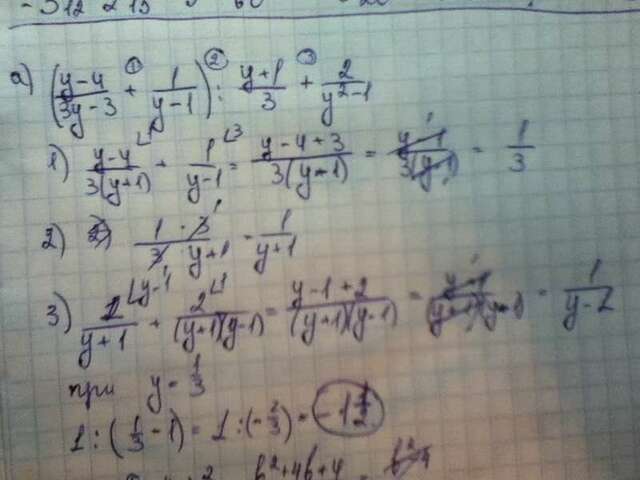 а) ((y-4)/(3y-3) + 1/(y-1)) : (y+1)/3 + 2/(y²-1)
1) (y-4)/(3(y+1)) + 1/(y-1) = (y-4+3)/(3(y+1)) = (y-1)/(3(y-1)) = 1/3
2) 1/3 · 3/(y+1) = 1/(y+1)
3) 1/(y+1) + 2/((y+1)(y-1)) = (y-1+2)/((y+1)(y-1)) = 1/(y-1)
при y = 1/3
1 : (1/3 - 1) = 1 : (-2/3) = -1 1/2
b²+4b+4 =